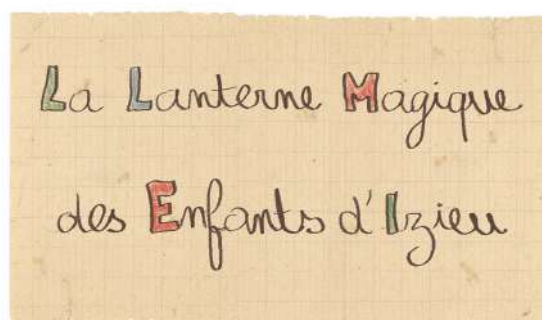 La Lanterne Magique
des Enfants d'Izieu